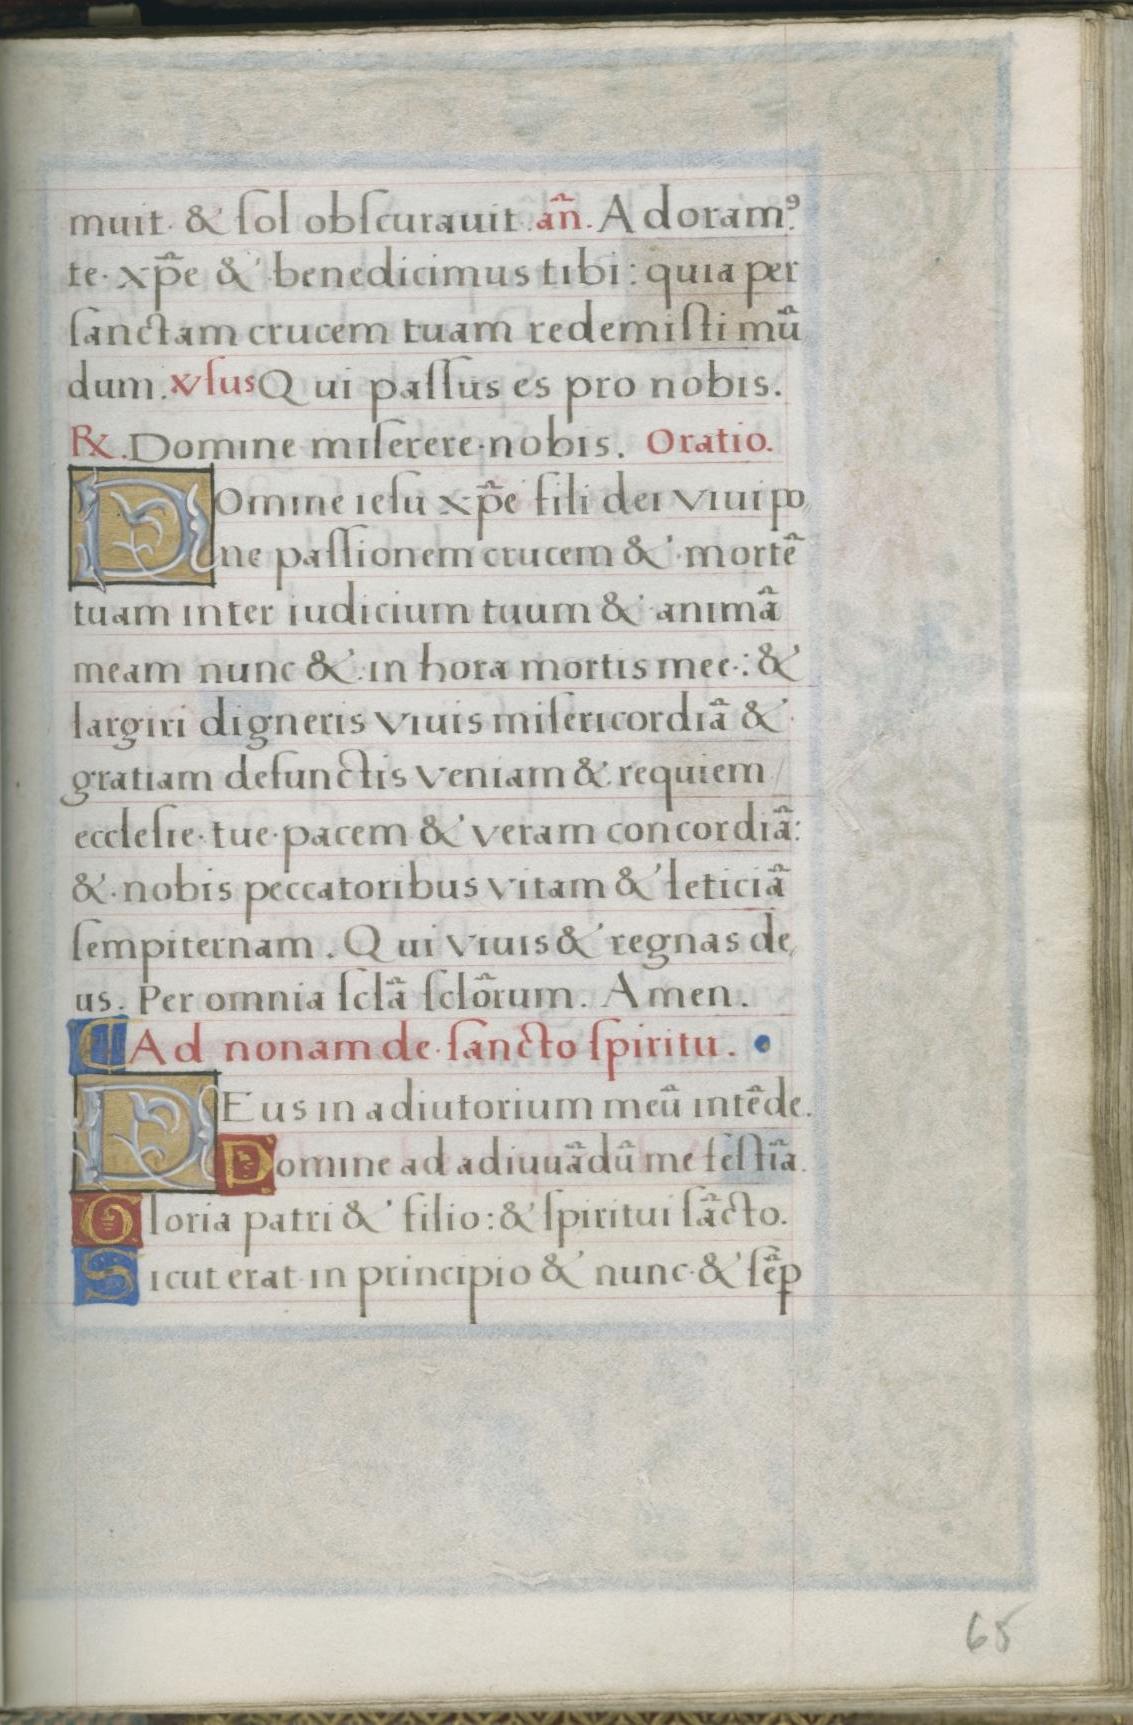 muit· & ſol obſcurauit. an̄. Adoramꝰ.
te· xp̄e & benedicimus tibi: quia per
ſanctam crucem tuam redemiſti mū
dum. vſus Qui paſſus es pro nobis.
℞. Domine miſerere·nobis. Oratio.
Domine ieſu xp̄e fili dei viui po,
ne paſſionem crucem &· mortē
tuam inter iudicium tuum & animā
meam nunc & in hora mortis mee·: &
largiri digneris viuis miſericordiā &
gratiam defunctis veniam & requiem /
eccleſie·tue·pacem & veram concordiā:
&·nobis peccatoribus vitam & leticiā
ſempiternam. Qui viuis & regnas de,
us. Per omnia ſclā ſclōrum. Amen.
¶ Ad nonam de·ſancto ſpiritu.
DEus in adiutorium meū intēde.
Domine ad adiuuādū me feſtīa.
Gloria patri & filio: & ſpiritui ſācto.
Sicut erat·in principio & nunc·& ſēp
65